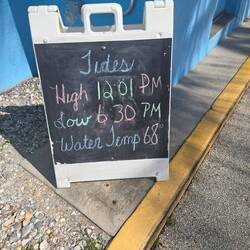 Tides
High 12:01 PM
Low 6:30 PM
Water Temp 68°